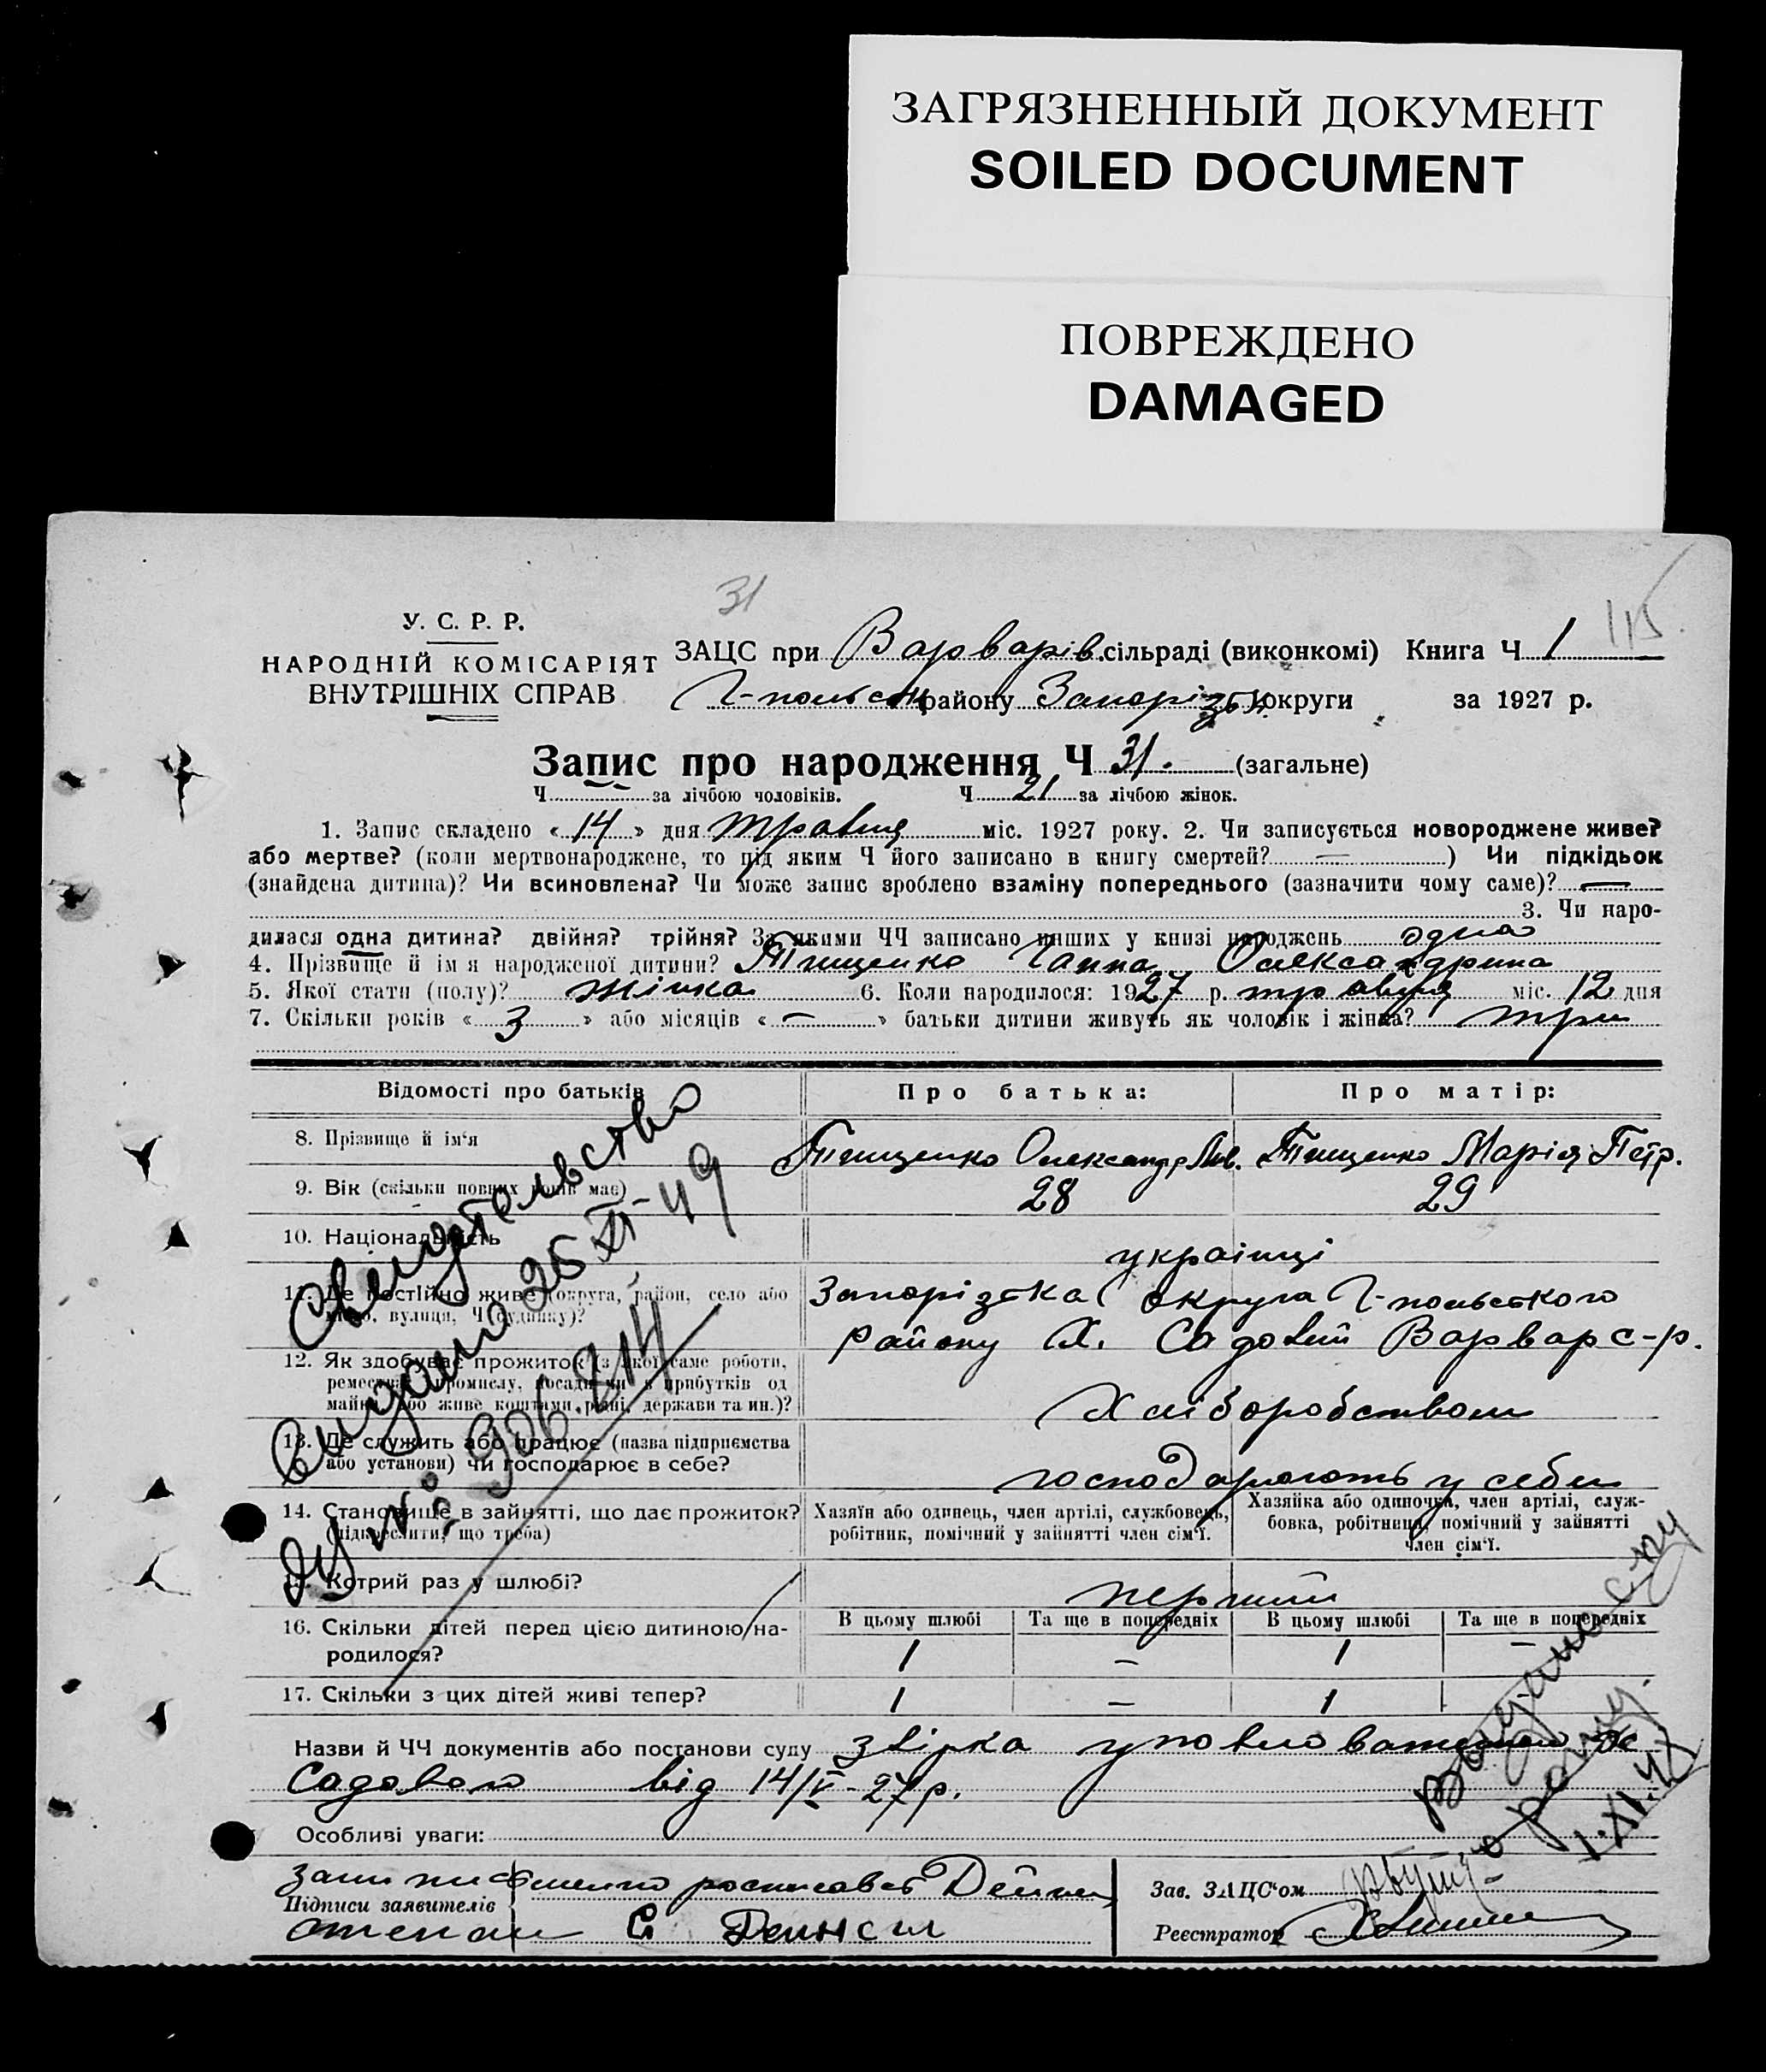 ЗАГРЯЗНЕННЫЙ ДОКУМЕНТ
SOILED DOCUMENT
ПОВРЕЖДЕНО
DAMAGED
31
115
У. С. Р. Р.
НАРОДНІЙ КОМІСАРІЯТ
ВНУТРІШНІХ СПРАВ
ЗАЦС при Варварів. сільраді (виконкомі) Книга Ч 1
Г-польськ району Запорізьк округи за 1927 р.
Запис про народження Ч 31. (загальне)
Ч — за лічбою чоловіків. Ч 21 за лічбою жінок.
1. Запис складено « 14 » дня травня міс. 1927 року. 2. Чи записується новороджене живе?
або мертве? (коли мертвонароджене, то під яким Ч його записано в книгу смертей? — ) Чи підкідьок
(знайдена дитина)? Чи всиновлена? Чи може запис зроблено взаміну попереднього (зазначити чому саме)? —
3. Чи наро-
дилася одна дитина? двійня? трійня? За якими ЧЧ записано инших у книзі народжень одна
4. Прізвище й ім я народженої дитини? Тищенко Ганна Олександрина
5. Якої стати (полу)? жінка 6. Коли народилося: 1927 р. травня міс. 12 дня
7. Скільки років « 3 » або місяців « — » батьки дитини живуть як чоловік і жінка? три
Відомості про батьків Про батька: Про матір:
8. Прізвище й ім'я Тищенко Олександр Тищенко Марія Петр.
9. Вік (скільки повних років має) 28 29
10. Національність українці
11. Де постійно живе (округа, район, село або Запорізька округа Г-польского
місто, вулиця, Ч будинку)? району Х. Садовий Варвар с-р.
12. Як здобуває прожиток (з якої саме роботи,
ремества, промислу, посади чи з прибутків од
майна, або живе коштами рідні, держави та ин.)? Хліборобством
13. Де служить або працює (назва підприємства
або установи) чи господарює в себе? господарюють у себе
14. Становище в зайнятті, що дає прожиток? Хазяїн або одинець, член артілі, службовець, Хазяйка або одиночка, член артілі, служ-
(підкреслити, що треба) робітник, помічний у зайнятті член сім'ї. бовка, робітниця, помічний у зайнятті
член сім'ї.
15. Котрий раз у шлюбі? перший
16. Скільки дітей перед цією дитиною на- В цьому шлюбі Та ще в попередніх В цьому шлюбі Та ще в попередніх
родилося? 1 — 1 —
17. Скільки з цих дітей живі тепер? 1 — 1
Назви й ЧЧ документів або постанови суду звірка уповноваженого
Садового від 14/V-27р.
Особливі уваги:
Підписи заявителів
росписавсь Дейнеи
Зав. ЗАЦС'ом
Реєстратор
Свидетельство
видано 25 XI-49
№ 906814
1.XI.49